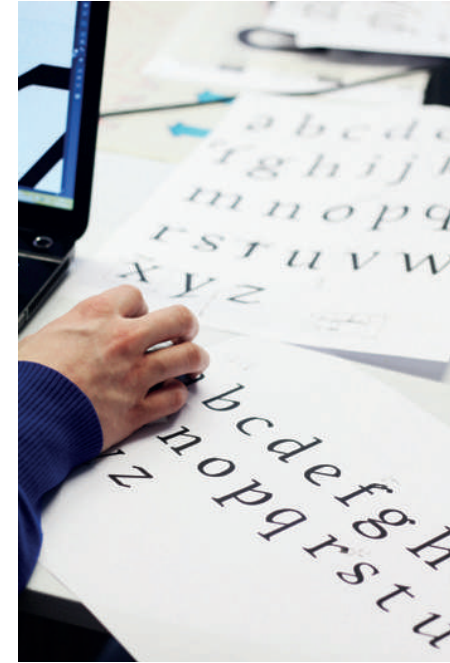 a b c d e
f g h i j
m n o p q
r s t u v w
x y z
b c d e f g h
n o p q r s t u
y z